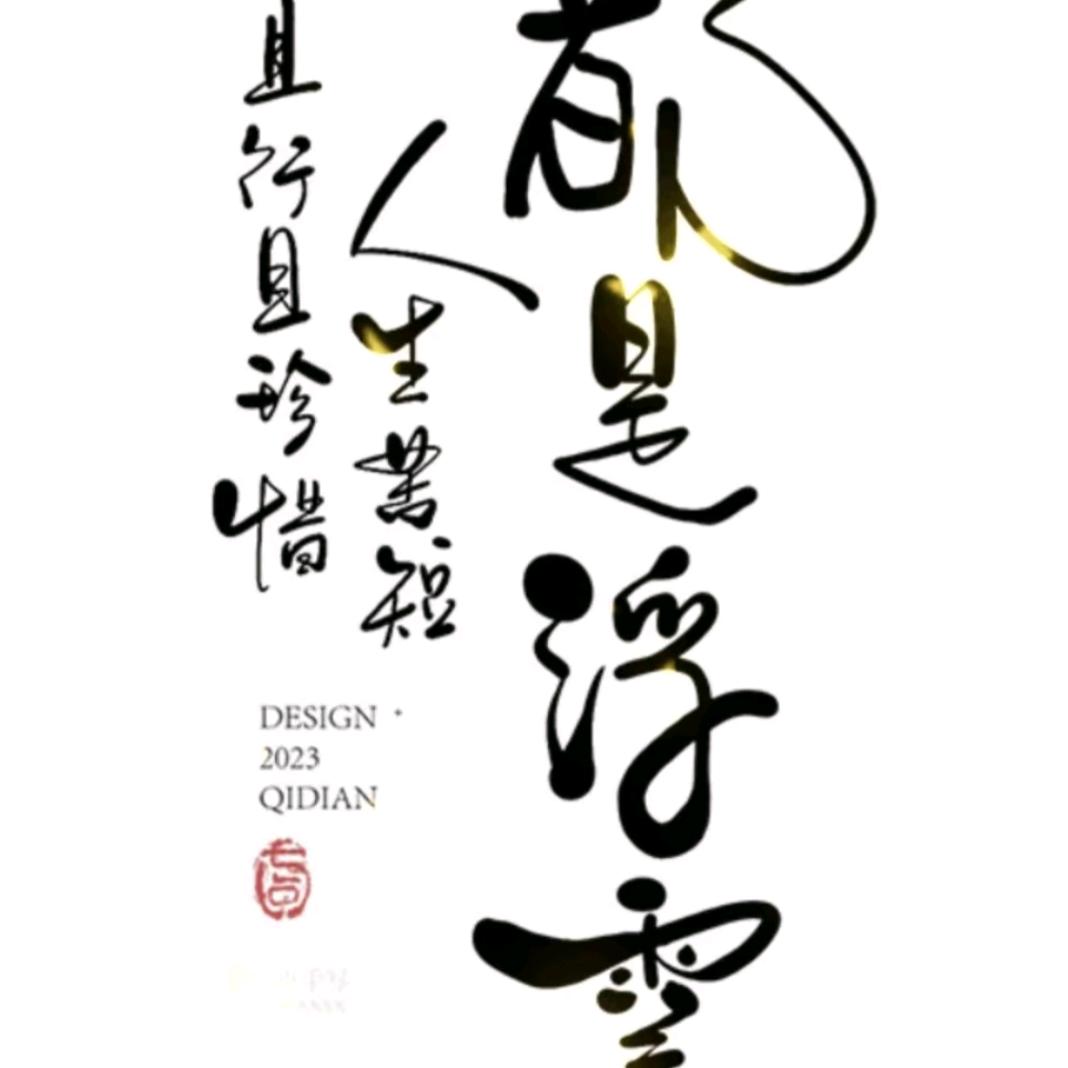 都是浮雲
人生苦短
且行且珍惜
DESIGN
2023
QIDIAN